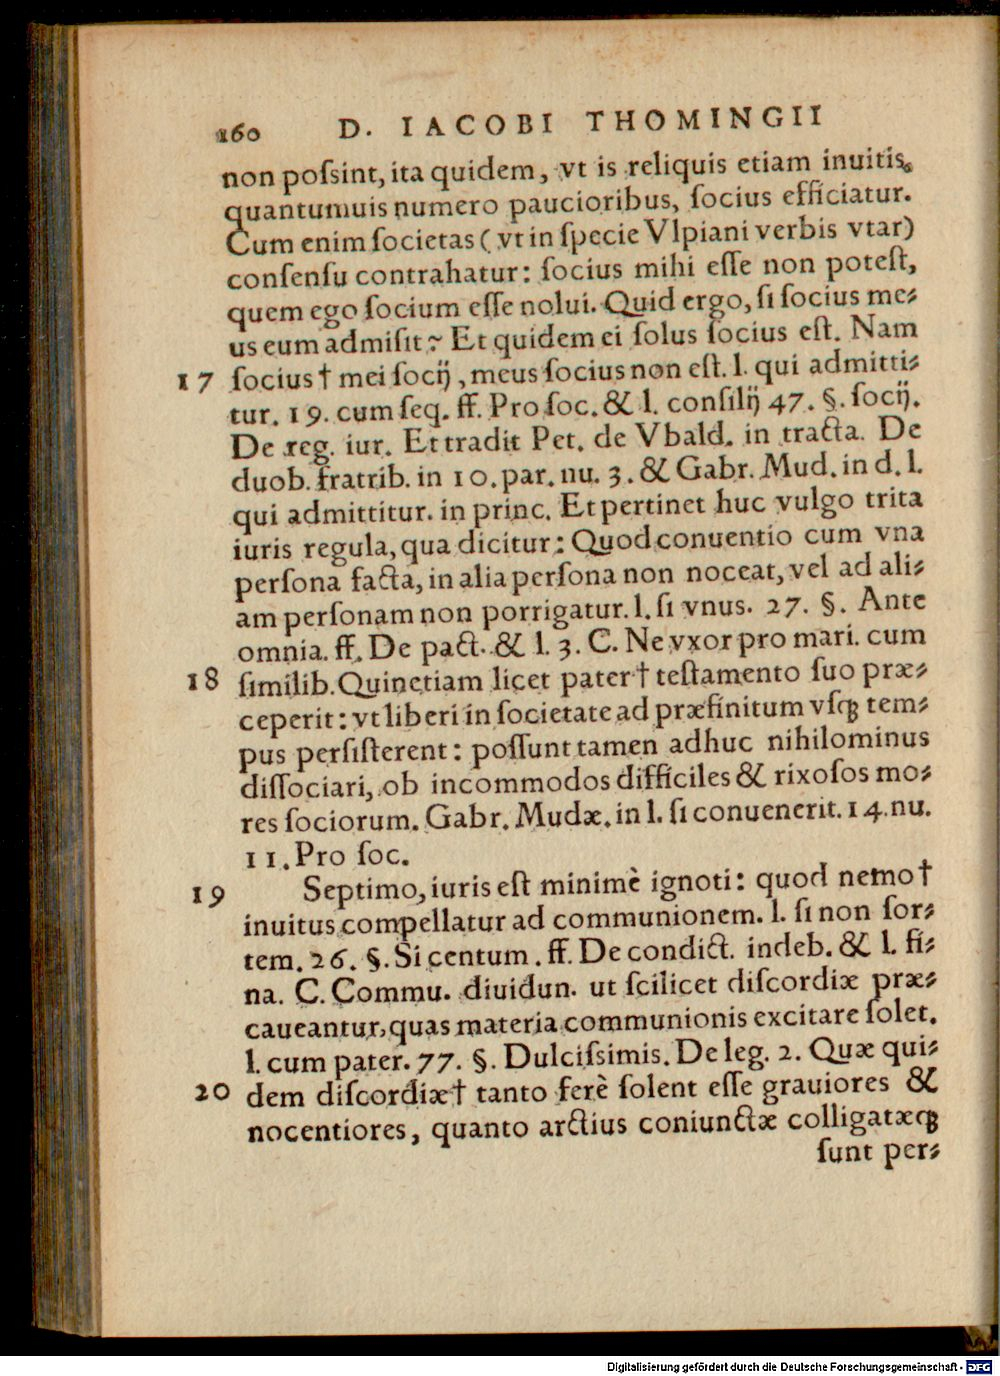 160 D. IACOBI THOMINGII
non poſsint, ita quidem, vt is reliquis etiam inuitis,
quantumuis numero paucioribus, ſocius efficiatur.
Cum enim ſocietas ( vt in ſpecie Vlpiani verbis vtar)
conſenſu contrahatur: ſocius mihi eſſe non poteſt,
quem ego ſocium eſſe nolui. Quid ergo, ſi ſocius me⸗
us eum admiſit? Et quidem ei ſolus ſocius eſt. Nam
17 ſocius † mei ſocij, meus ſocius non eſt. l. qui admitti⸗
tur. 19. cum ſeq. ff. Pro ſoc. & l. conſilij 47. §. ſocij.
De reg. iur. Et tradit Pet. de Vbald. in tracta. De
duob. fratrib. in 10. par. nu. 3. & Gabr. Mud. in d. l.
qui admittitur. in princ. Et pertinet huc vulgo trita
iuris regula, qua dicitur: Quod conuentio cum vna
perſona facta, in alia perſona non noceat, vel ad ali⸗
am perſonam non porrigatur. l. ſi vnus. 27. §. Ante
omnia. ff. De pact. & l. 3. C. Ne vxor pro mari. cum
18 ſimilib. Quinetiam licet pater † teſtamento ſuo præ⸗
ceperit: vt liberi in ſocietate ad præfinitum vſq́; tem⸗
pus perſiſterent: poſſunt tamen adhuc nihilominus
diſſociari, ob incommodos difficiles & rixoſos mo⸗
res ſociorum. Gabr. Mudæ. in l. ſi conuenerit. 14. nu.
11. Pro ſoc.
19 Septimo, iuris eſt minimè ignoti: quod nemo †
inuitus compellatur ad communionem. l. ſi non ſor⸗
tem. 26. §. Si centum. ff. De condict. indeb. & l. fi⸗
na. C. Commu. diuidun. ut ſcilicet diſcordiæ præ⸗
caueantur, quas materia communionis excitare ſolet.
l. cum pater. 77. §. Dulciſsimis. De leg. 2. Quæ qui⸗
20 dem diſcordiæ † tanto ferè ſolent eſſe grauiores &
nocentiores, quanto arctius coniunctæ colligatæq́;
ſunt per⸗
Digitalisierung gefördert durch die Deutsche Forschungsgemeinschaft - DFG